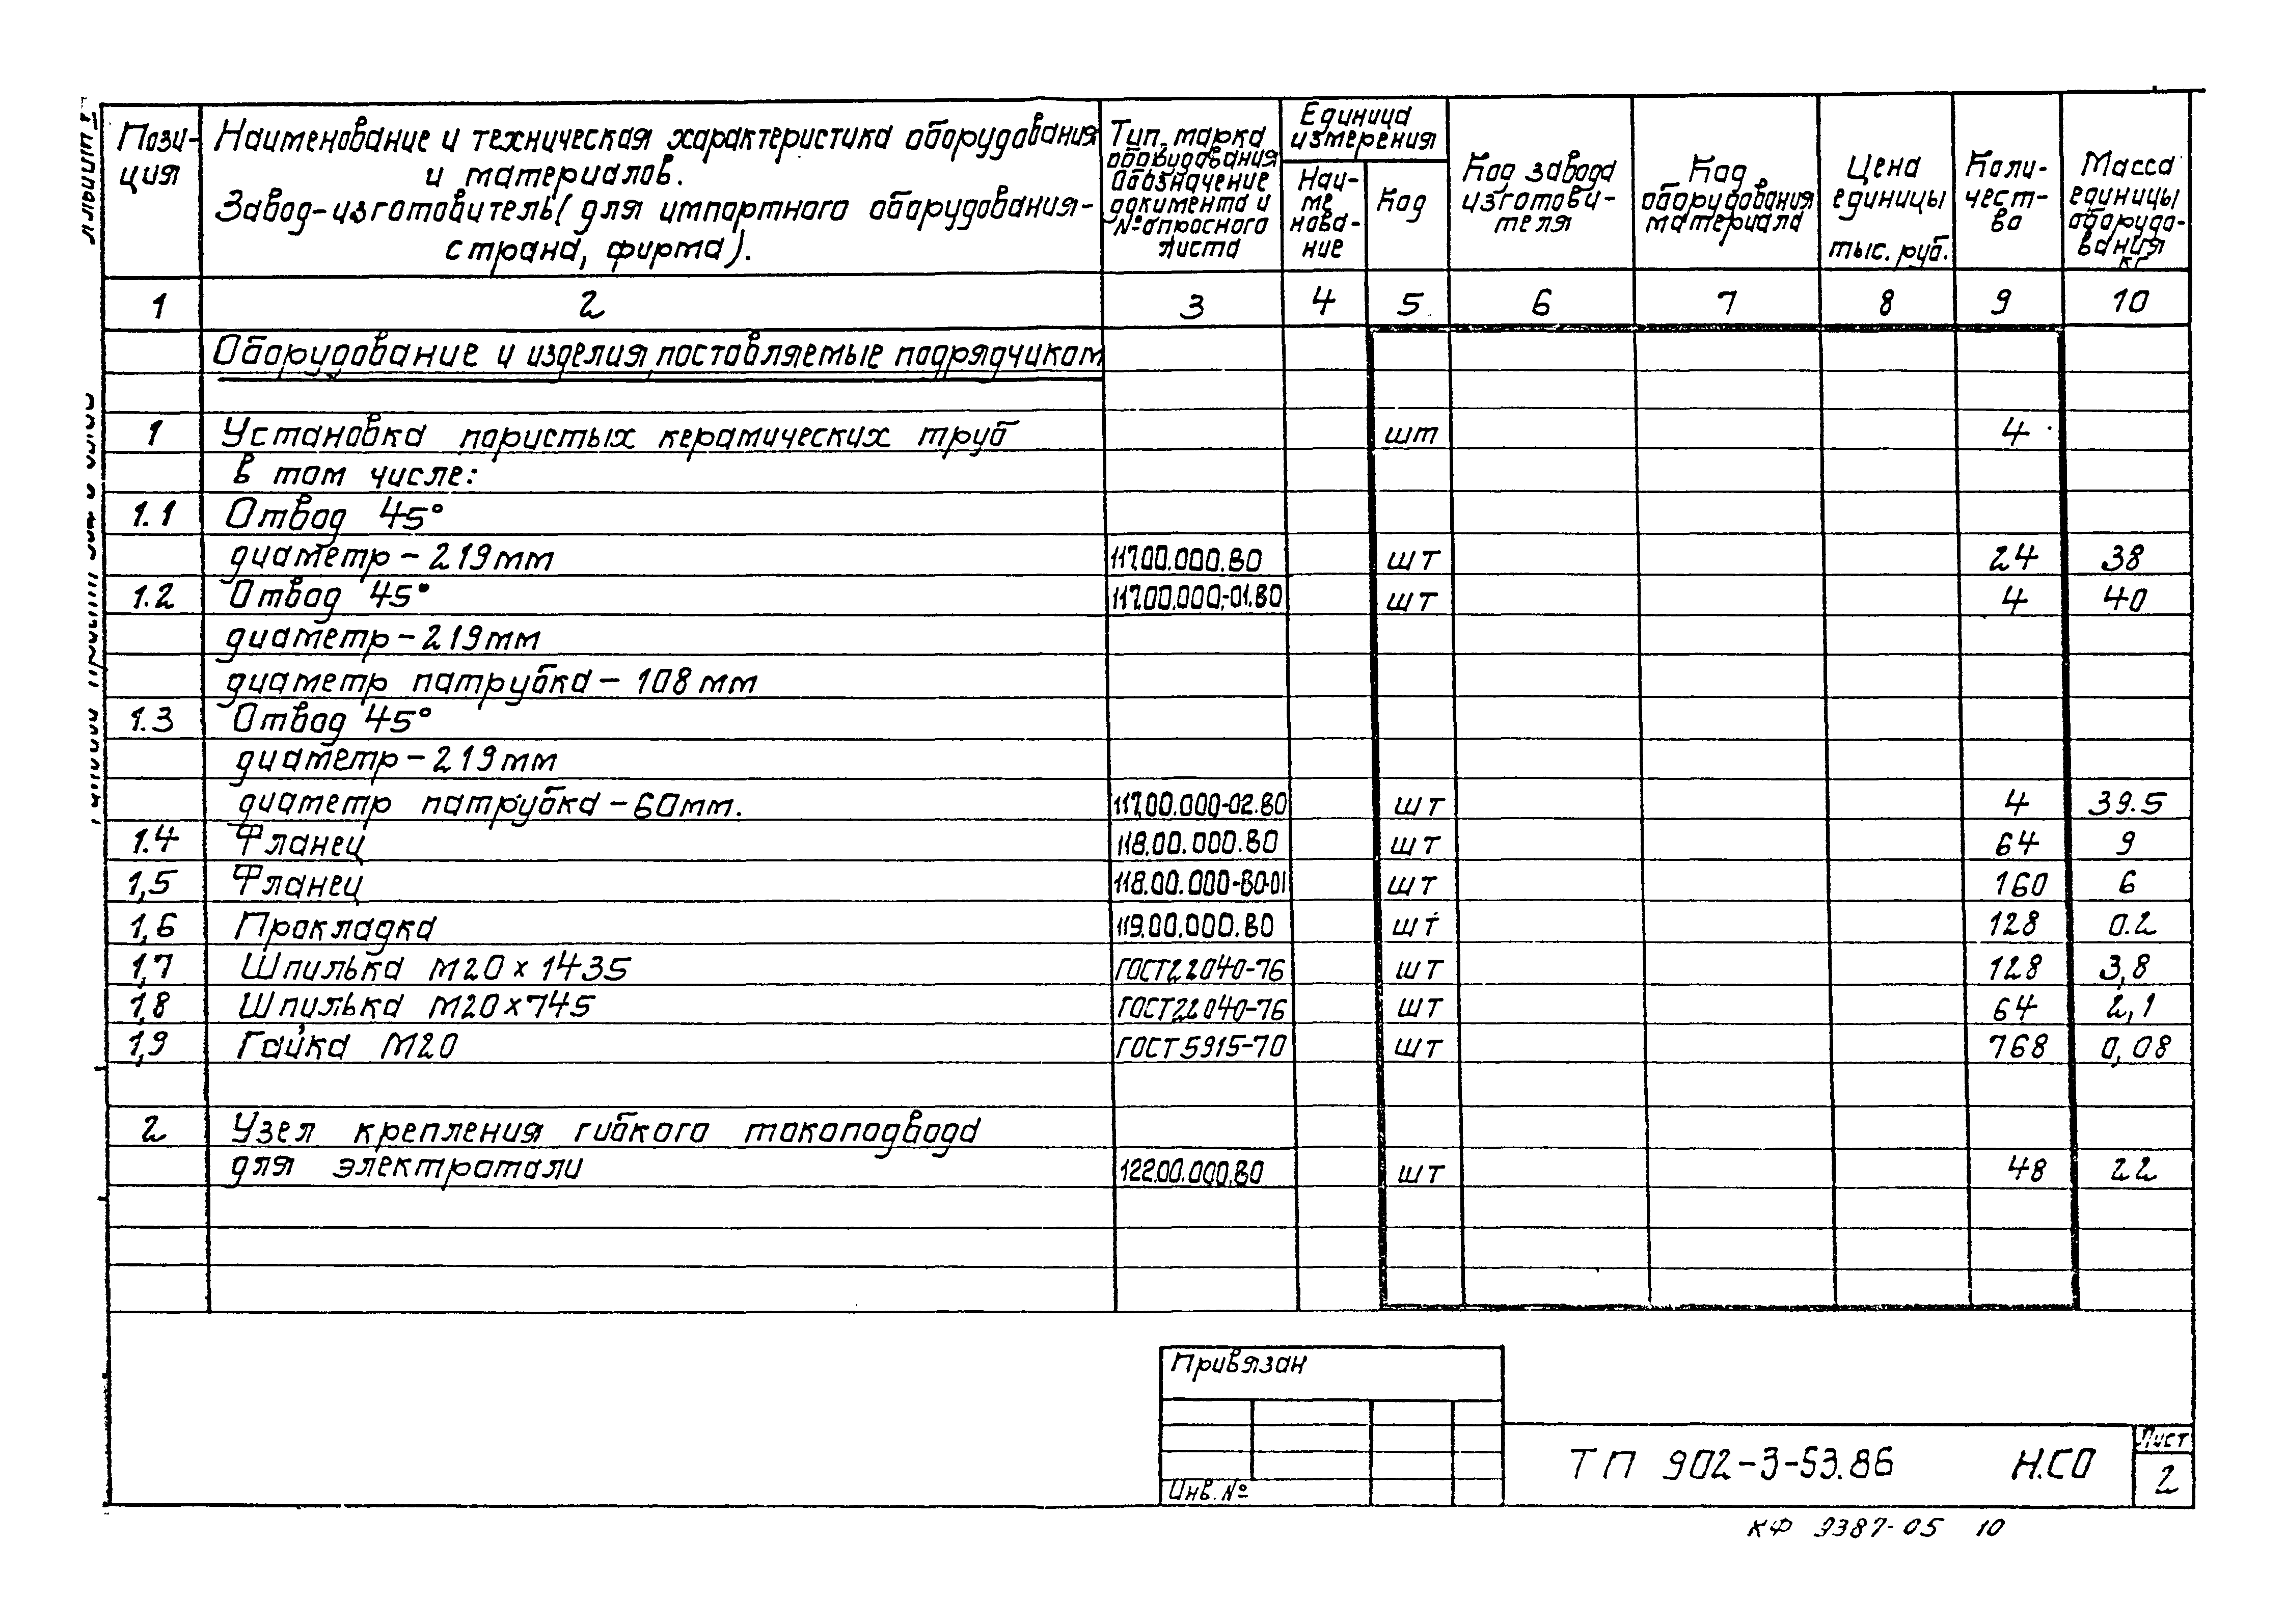 Пози-
ция
Наименование и техническая характеристика оборудования
и материалов.
Завод-изготовитель (для импортного оборудования-
страна, фирма).
Тип, марка
оборудования
Обозначение
документа и
№ опросного
листа
Единица
измерения
Наи-
ме
нова-
ние
Код
Код завода
изготови-
теля
Код
оборудования
материала
Цена
единицы
тыс. руб.
Коли-
чест-
во
Масса
единицы
оборудо-
вания
кг
1 2 3 4 5 6 7 8 9 10
Оборудование и изделия, поставляемые подрядчиком
1 Установка пористых керамических труб шт 4
в том числе:
1.1 Отвод 45°
диаметр - 219 мм 117.00.000.ВО шт 24 38
1.2 Отвод 45° 117.00.000-01.ВО шт 4 40
диаметр - 219 мм
диаметр патрубка - 108 мм
1.3 Отвод 45°
диаметр - 219 мм
диаметр патрубка - 60 мм. 117.00.000-02.ВО шт 4 39.5
1.4 Фланец 118.00.000.ВО шт 64 9
1,5 Фланец 118.00.000-ВО-01 шт 160 6
1,6 Прокладка 119.00.000.ВО шт 128 0.2
1,7 Шпилька М20 х 1435 ГОСТ 22040-76 шт 128 3,8
1,8 Шпилька М20х745 ГОСТ 22040-76 шт 64 2,1
1,9 Гайка М20 ГОСТ 5915-70 шт 768 0,08
2 Узел крепления гибкого токоподвода
для электротали 122.00.000.ВО шт 48 22
Привязан
Инв. №
ТП 902-3-53.86 Н.СО
Лист
2
КФ 9387-05 10